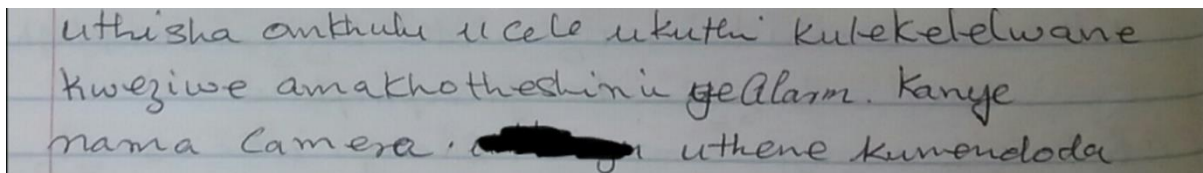 uthisha omkhulu ucele ukuthi kulekelelwane
kweziwe amakhotheshini yeAlarm. Kanye
nama Camera. uthene kunendoda